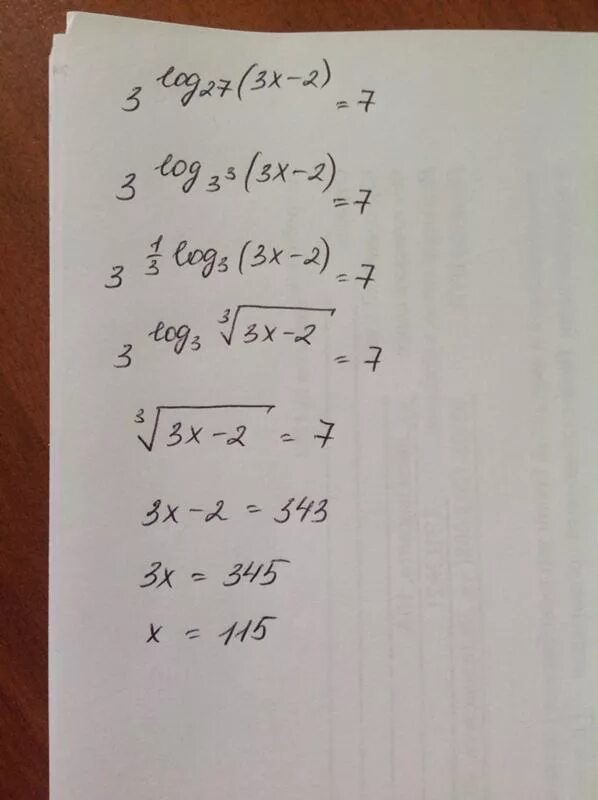 3^{log_{27}(3x-2)} = 7
3^{log_{3^3}(3x-2)} = 7
3^{\frac{1}{3} log_3(3x-2)} = 7
3^{log_3 \sqrt[3]{3x-2}} = 7
\sqrt[3]{3x-2} = 7
3x-2 = 343
3x = 345
x = 115